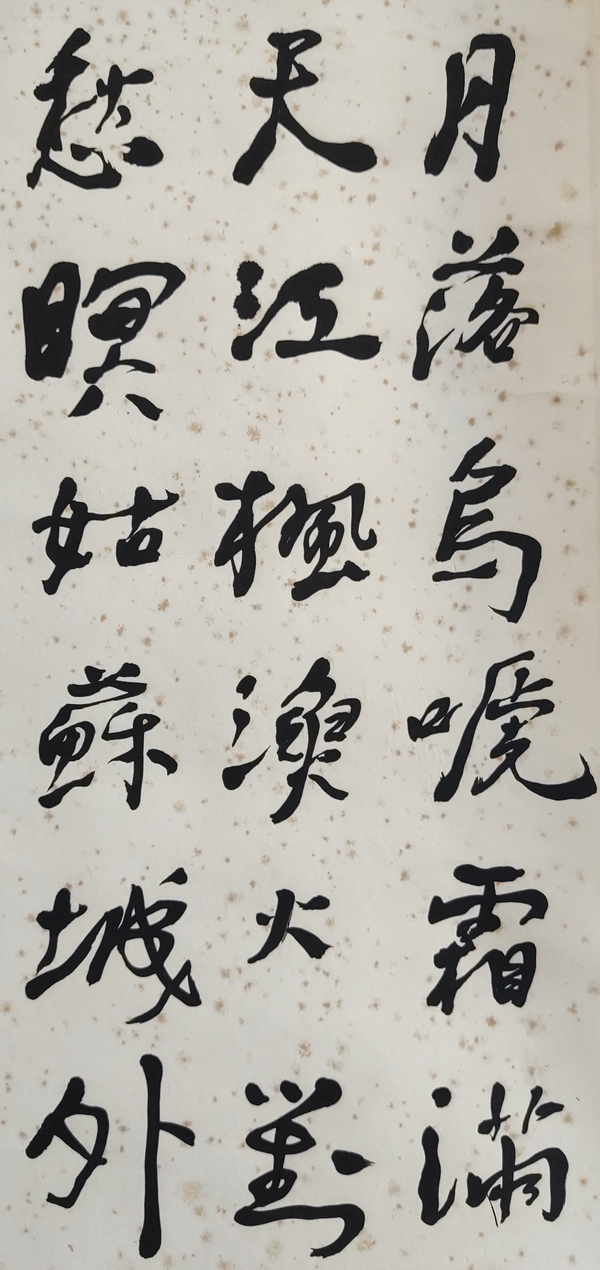 月落烏嗁霜滿
天江楓漁火對
愁瞑姑蘇城外